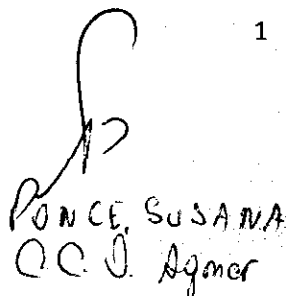 1
PONCE, SUSANA
C.C.D. Agmer